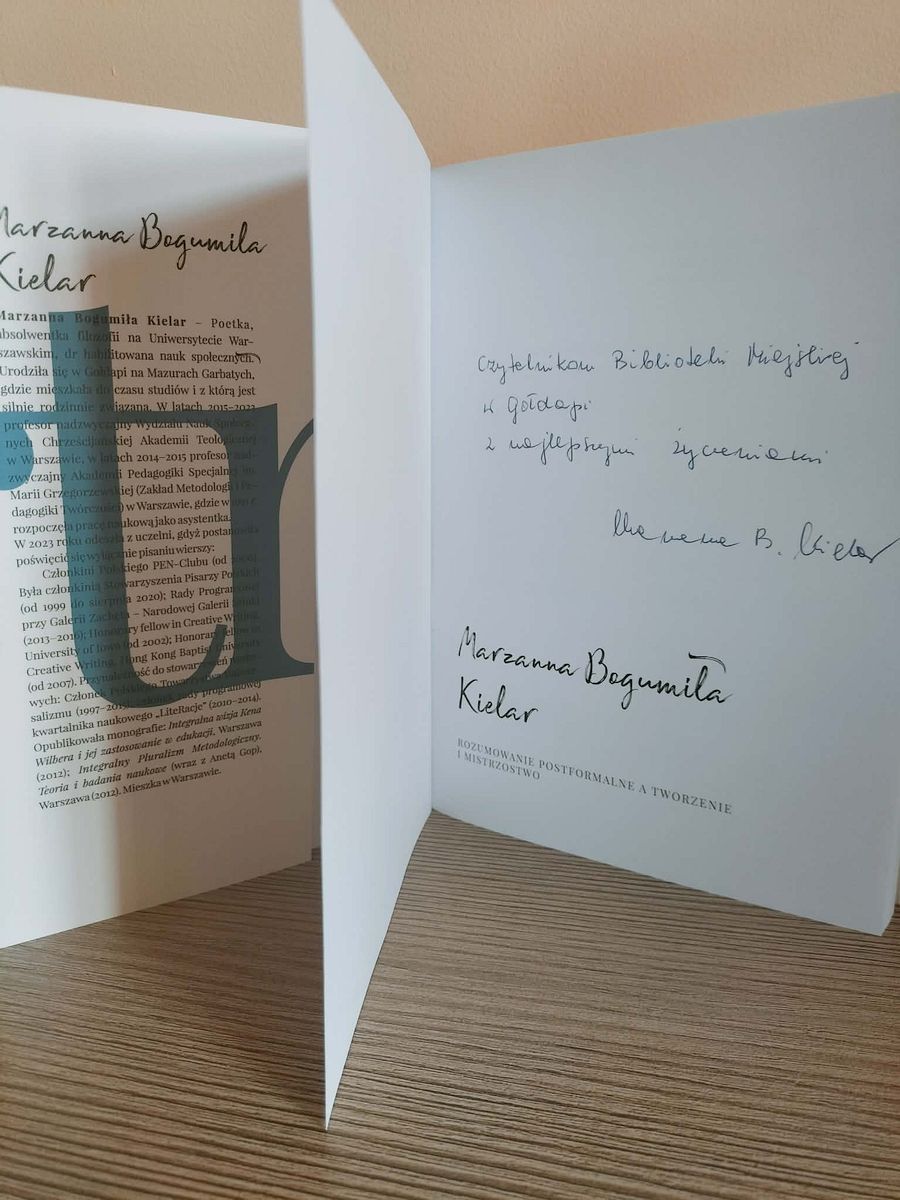 Marzanna Bogumiła
Kielar
Marzanna Bogumiła Kielar – Poetka,
absolwentka filozofii na Uniwersytecie War-
szawskim, dr habilitowana nauk społecznych.
Urodziła się w Gołdapi na Mazurach Garbatych,
gdzie mieszkała do czasu studiów i z którą jest
silnie rodzinnie związana. W latach 2015–2023
profesor nadzwyczajny Wydziału Nauk Społecz-
nych Chrześcijańskiej Akademii Teologicznej
w Warszawie, w latach 2014–2015 profesor nad-
zwyczajny Akademii Pedagogiki Specjalnej im.
Marii Grzegorzewskiej (Zakład Metodologii i Pe-
dagogiki Twórczości) w Warszawie, gdzie w 1991 r.
rozpoczęła pracę naukową jako asystentka.
W 2023 roku odeszła z uczelni, gdyż postanowiła
poświęcić się wyłącznie pisaniu wierszy:
Członkini Polskiego PEN-Clubu (od
Była członkinią Stowarzyszenia Pisarzy Polskich
(od 1999 do sierpnia 2020); Rady Programowej
przy Galerii Zachęta – Narodowej Galerii Sztuki
(2013–2016); Honorary fellow in Creative Writing,
University of Iowa (od 2002); Honorary fellow in
Creative Writing, Hong Kong Baptist University
(od 2007). Przynależność do stowarzyszeń
wych: Członek Polskiego Towarzystwa Uniwer-
salizmu (1997–2015), członek rady programowej
kwartalnika naukowego „LiteRacje” (2010–2014).
Opublikowała monografie: Integralna wizja Kena
Wilbera i jej zastosowanie w edukacji, Warszawa
(2012); Integralny Pluralizm Metodologiczny.
Teoria i badania naukowe (wraz z Anetą Gop),
Warszawa (2012). Mieszka w Warszawie.
tr
Czytelnikom Biblioteki Miejskiej
w Gołdapi
z najlepszymi życzeniami
Marzanna B. Kielar
Marzanna Bogumiła
Kielar
ROZUMOWANIE POSTFORMALNE A TWORZENIE
I MISTRZOSTWO